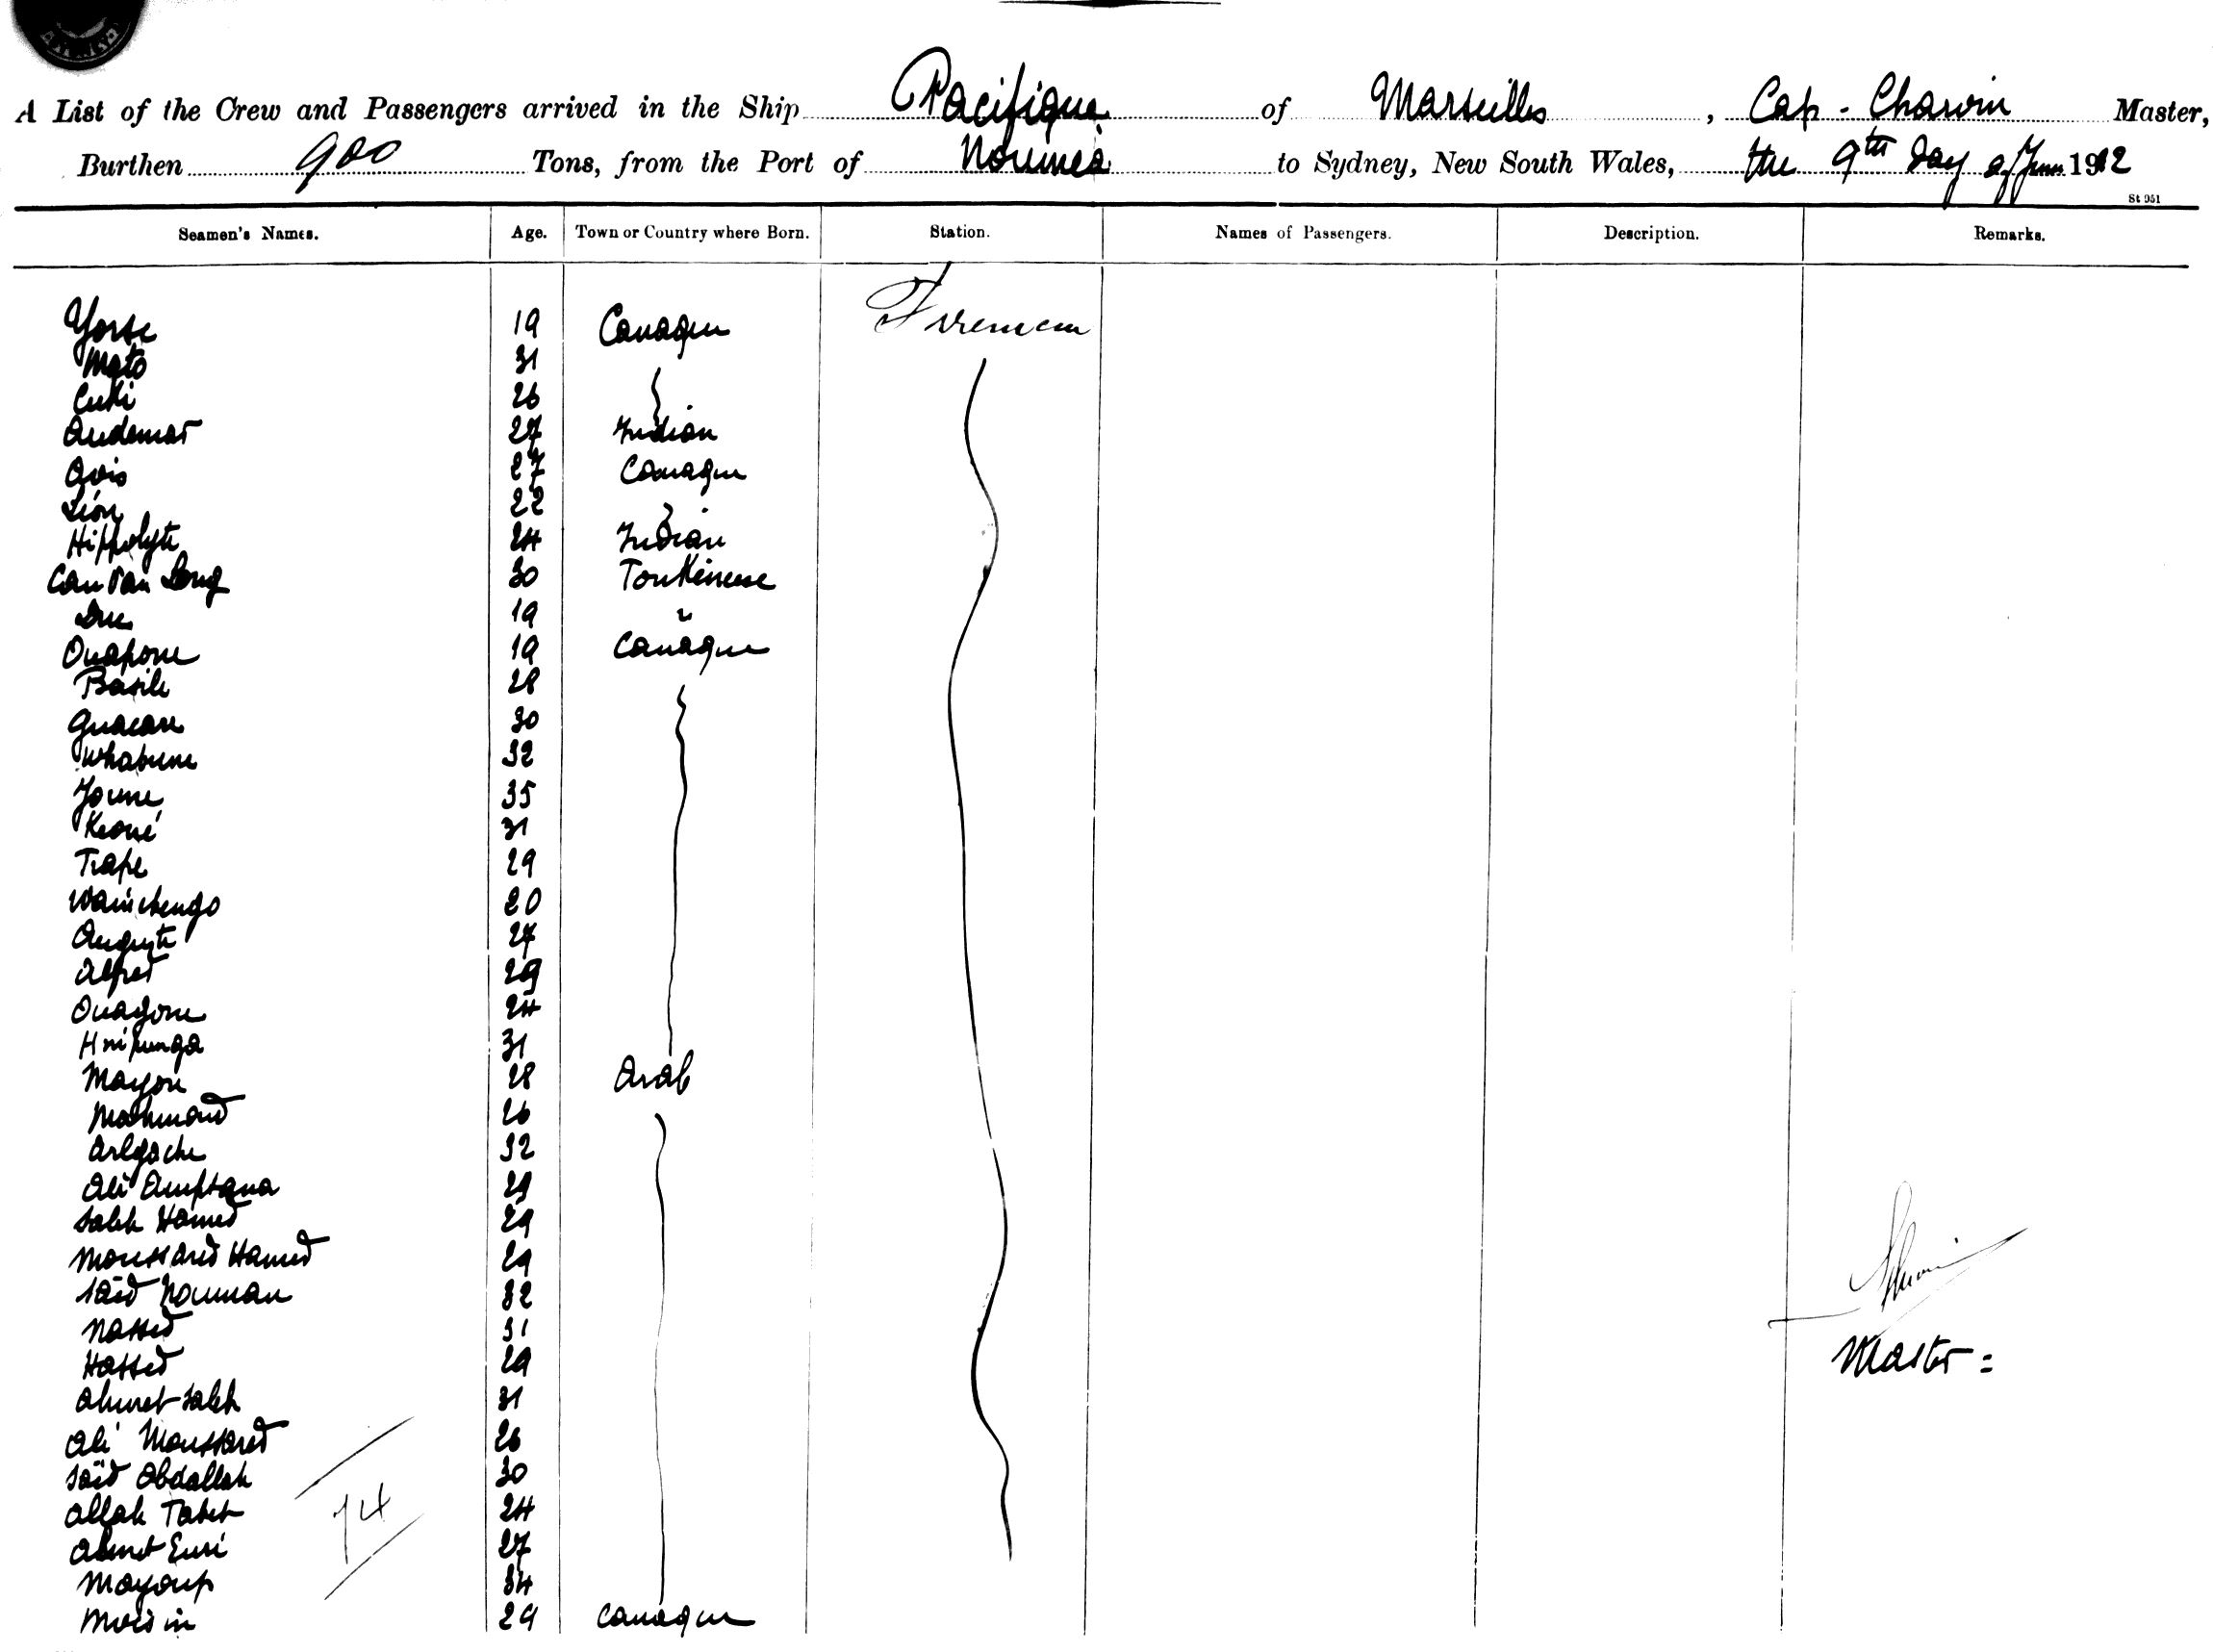 A List of the Crew and Passengers arrived in the Ship Pacifique of Marseilles, Cap - Charvin Master,
Burthen 900 Tons, from the Port of Noumea to Sydney, New South Wales, the 9th Day of June 1912
St 951
Seamen's Names. Age. Town or Country where Born. Station. Names of Passengers. Description. Remarks.
19 Canaque Firemen
Mato 31
Cuki 26
Audemar 27 Indian
27 Canaque
Léon 22 "
Hippolyte 24 Indian
Can Van Long 30 Tonkinese
19 "
Ouapone 19 Canaque
Basile 28
30
Whabune 32
Joune 35
Kroné 31
Trape 29
20
Auguste 27
Alfred 29
Ouagone 24
Hnipunga 31
Mayou 28 Arab
Mahmoud 26
Arlgache 32
Ali 29
Saleh Hamed 29
Moussared Hamed 29
Saïd Nouman 32
Nassed 31
Hassed 29
Ahmet Saleh 31
Ali Moussared 26
Saïd Abdallah 30
Allah Tabet 24
Ahmet 27
Mayoup 34
29 Canaque
74
Master =